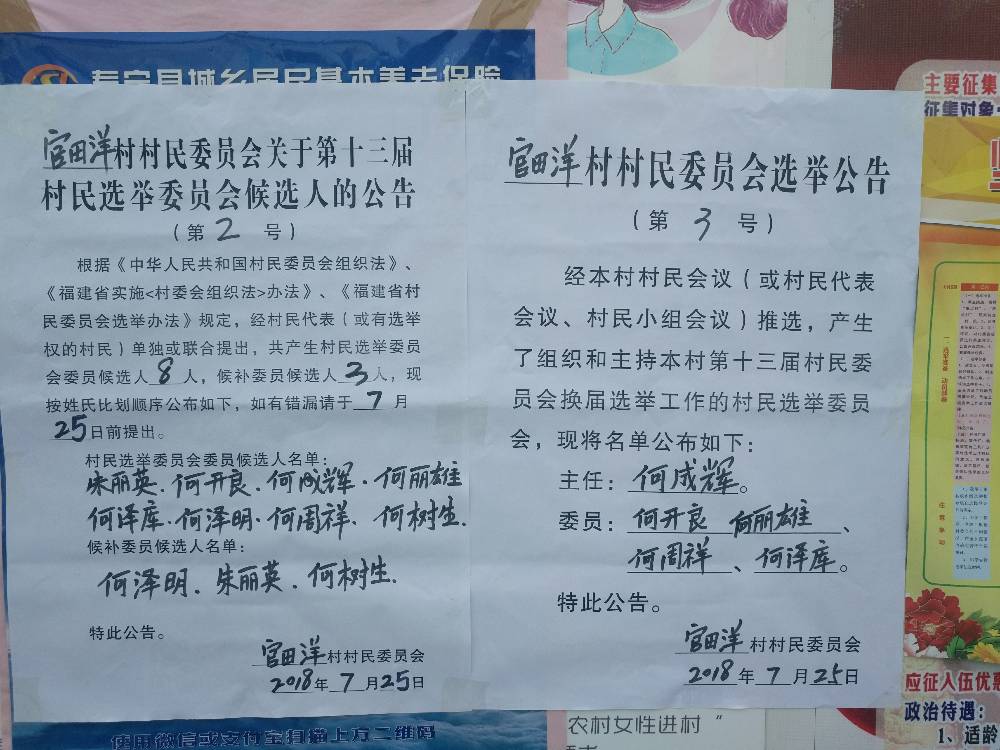 寿宁县城乡居民基本养老保险
官田洋村村民委员会关于第十三届
村民选举委员会候选人的公告
（第 2 号）
根据《中华人民共和国村民委员会组织法》、
《福建省实施<村委会组织法>办法》、《福建省村
民委员会选举办法》规定，经村民代表（或有选举
权的村民）单独或联合提出，共产生村民选举委员
会委员候选人8人，候补委员候选人3人，现
按姓氏比划顺序公布如下，如有错漏请于7月
25日前提出。
村民选举委员会委员候选人名单：
朱丽英、何开良、何成辉、何丽雄
何泽库、何泽明、何周祥、何树生.
候补委员候选人名单：
何泽明、朱丽英、何树生.
特此公告。
官田洋村村民委员会
2018年7月25日
使用微信或支付宝扫描上方二维码
官田洋村村民委员会选举公告
（第 3 号）
经本村村民会议（或村民代表
会议、村民小组会议）推选，产生
了组织和主持本村第十三届村民委
员会换届选举工作的村民选举委员
会，现将名单公布如下：
主任：何成辉。
委员：何开良 何丽雄、
何周祥、何泽库。
特此公告。
官田洋村村民委员会
2018年7月25日
农村女性进村”
主要征集
征集对象
应征入伍优惠
政治待遇：
1、适龄